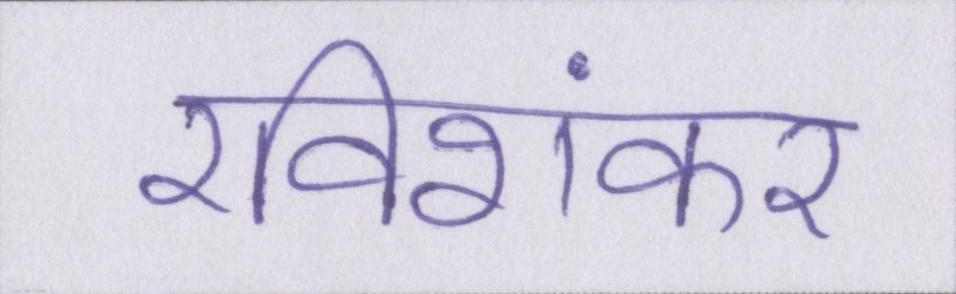 रविशंकर